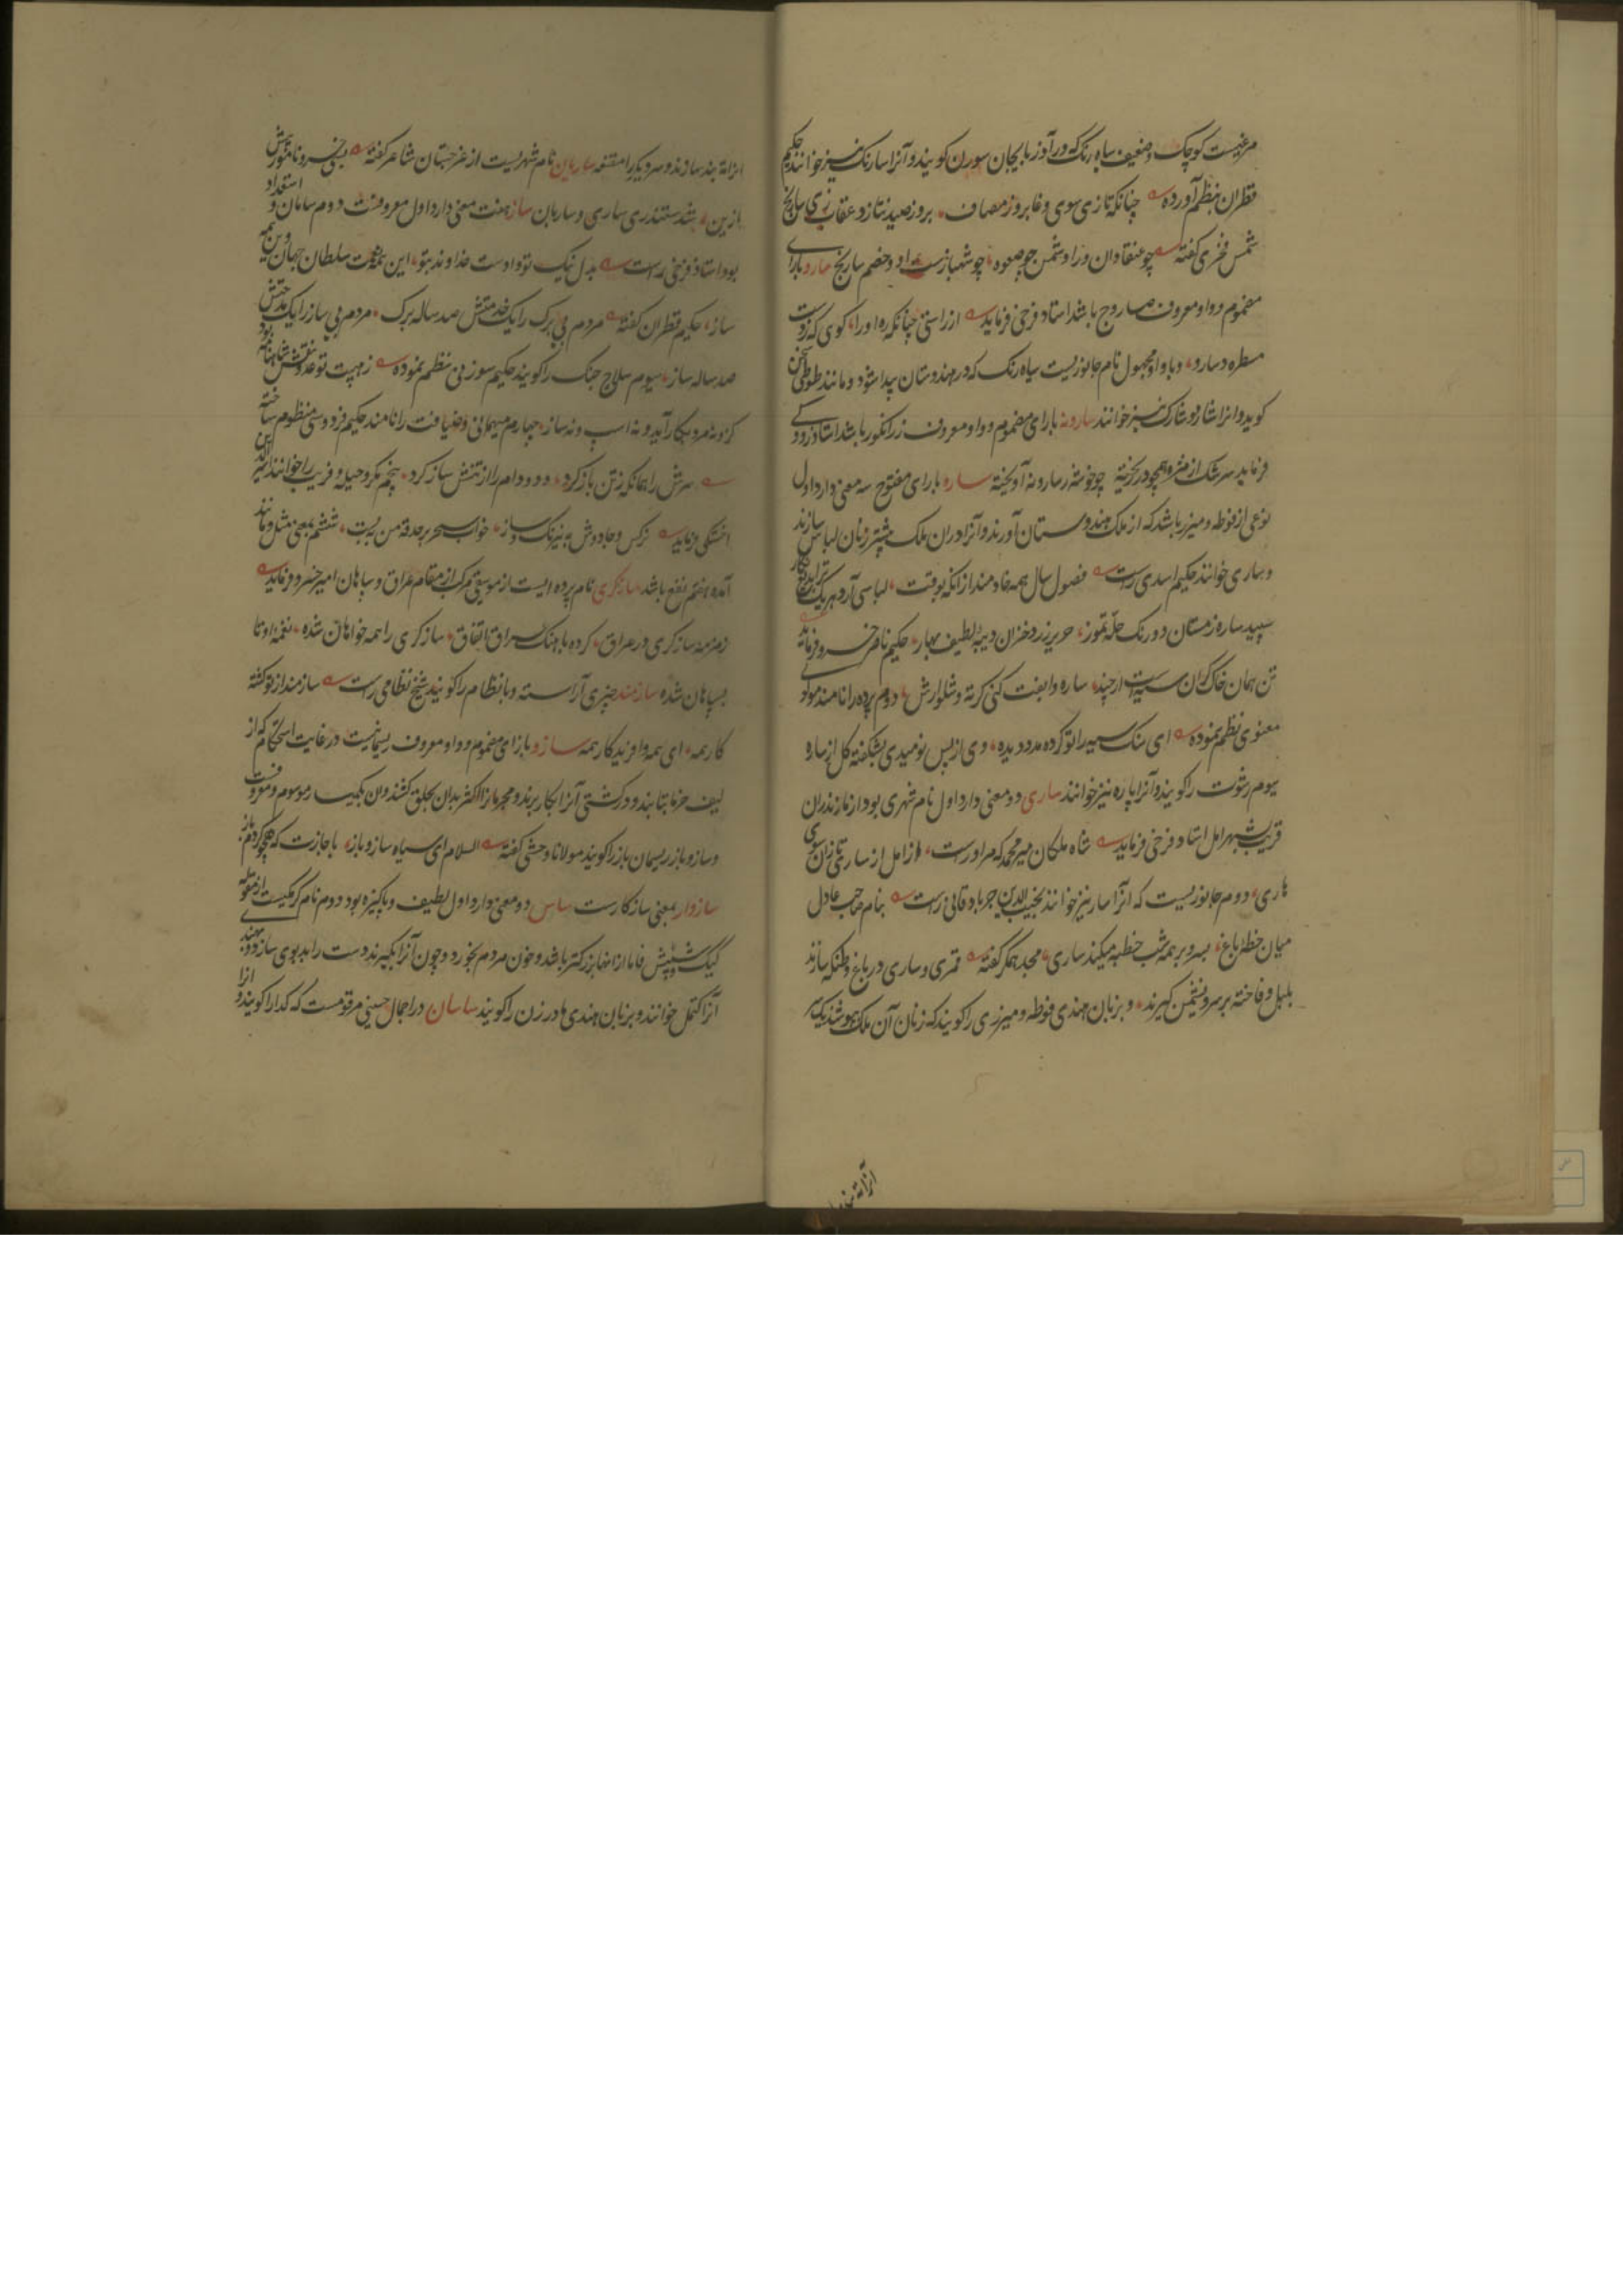 مرغیست کوچک و ضعیف سیاه رنگ که در آذربایجان سودن کویند و آنرا سارنک نیز خوانند حکیم
قطران بنظم آورده چنانکه تازی سوی وغا بروز مصاف بروز صید نتازد عقاب زی سارنج
شمس فخری کفته چو عنقا دان ورا دشمن چو صعوه چو شهبازست او و خصم سارنج سارو بارای
مضموم و واو معروف صاروج باشد استاد فرخی فرماید از راستی چنانکه ره او را کوی که زدست
مسطره و سارو و با واو مجهول نام جانوریست سیاه رنک که در هندوستان پیدا شود و مانند طوطی سخن
کوید و انرا شارو شارک نیز خوانند سارونه بارای مضموم و واو معروف رز انکور باشد استاد رودکی
فرماید سرشک از مژه همچو در ریخته چو خوشه ز سارونه آویخته ساره بارای مفتوح سه معنی دارد اول
نوعی از فوطه و میزر باشد که از ملک هندوستان آورند و آنرا در آن ملک بیشتر زنان لباس سازند
و ساری خوانند حکیم اسدی راست فصول سال همه خادمند از انکه بوقت لباسی آرد هریک
سپید ساره زمستان دو رنک حله تموز حریر زرد خزان دیبه لطیف بهار حکیم ناصر خسرو فرماید
تن همان خاک گران سیه است ارچند ساره وا بفت کنی کرته و شلوارش دوم پرده را نامند مولوی
معنوی نظم نموده ای سنک سیه را تو کرده مدد دیده وی از پس نومیدی بشکفته کل از ساره
سیوم رشوت را کویند و آنرا پاره نیز خوانند ساری دو معنی دارد اول نام شهری بود از مازندران
قریب بشهر امل استاد فرخی فرماید شاه ملکان میر محمد که مر اوراست از امل از ساری تا زان سوی
ماری دوم جانوریست که آنرا سار نیز خوانند نجیب الدین جربادقانی راست بنام صاحب عادل
میان خطه باغ بسرو بر همه شب خطبه میکند ساری مجد همکر کفته قمری و ساری در باغ وطنکه سازند
بلبل و فاخته بر سرو نشیمن کیرند و بزبان هندی فوطه و میزری را کویند که زنان آن ملک پوشند یکسر
آنرا ته بند
انرا ته بند سازند و سر دیکر را مقنعه ساریان نام شهریست از غرجستان شاعر کفته
باز بین شد ستندری ساری و ساریان ساز هفت معنی دارد اول معروفست دوم سامان و استعداد
بود استاد فرخی راست بدل نیک تو داوست خداوند بتو این همه نعمت سلطان جهان وین همه
ساز حکیم قطران کفته مردم بی برک را یک خدمتش صد ساله برک مردم بی ساز را یک مدحتش
صد ساله ساز سیوم سلاح جنک را کویند حکیم سوزنی منظم نموده ز هیبت تو عدو نقش شاهنامه شود
کزو نه مرد بکار آید و نه اسپ و نه ساز چهارم میهمانی و ضیافت را نامند حکیم فردوسی منظوم ساخته
سرش را همانکه ز تن باز کرد دد و دام را از تنش ساز کرد پنجم مکر و حیله و فریب را خوانند اثیر الدین
اخسیکتی فرماید نرکس و جادوش به نیرنک و ساز خواب سحر بر حدقه من ببست ششم بمعنی مثل و مانند
آمده هفتم نفع باشد سازکری نام پرده ایست از موسیقی مرکب از مقام عراق و سپاهان امیر خسرو فرماید
زمزمه سازکری در عراق کرده باهنک عراق اتفاق سازکری را همه خواهان شده نغمه او تا
بسپاهان شده سازمند چیزی آراسته و بانظام را کویند شیخ نظامی راست سازمند از تو کشته
کار همه ای همه و افریدکار همه سازو بازای مضموم و واو معروف ریسمانیست در غایت استحکام که از
لیف خرما بتابند و در کشتی آنرا بکار برند و مجرمانرا اکثر بدان بحلق کشند و ان بکمبسار موسوم و معروفست
و ساز و باز ریسمان باز را کویند مولانا وحشی کفته السلام ای سیاه ساز و باز
سازوار بمعنی سازکارست ساس دو معنی دارد اول لطیف و پاکیزه بود دوم نام کرمکیست از مقوله
کیک و شپش فاما از انها بزرکتر باشد و خون مردم بخورد و چون آنرا بکیرند دست را بد بوی سازد و بهندی
آنرا کتمل خوانند و بزبان هندی مادر زن را کویند ساسان در اجمال حسینی مرقومست که کدا را کویند و انرا